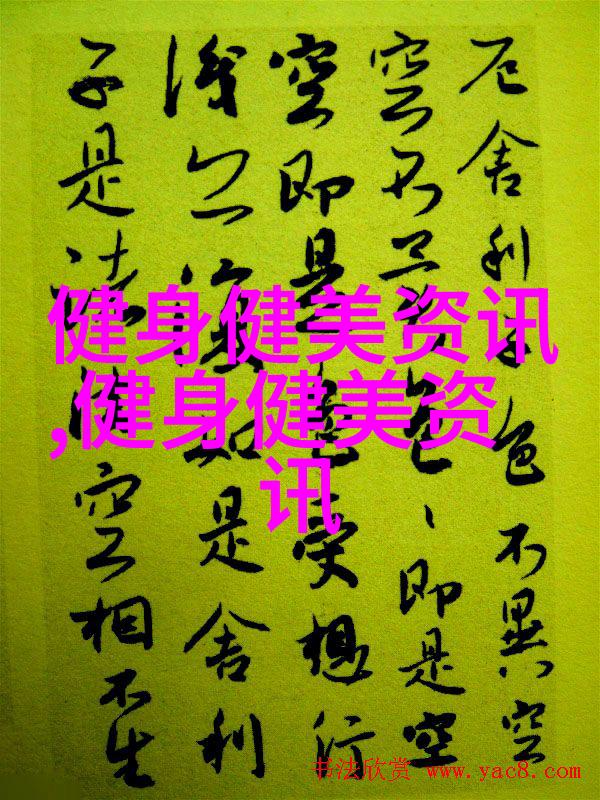 厄舍利子色不異空
空不異色、即是空
空即是色受想行
識亦復如是舍利
子是諸法空相不生
健身健美资讯
,健身健美资
讯
书法欣赏 www.yac8.com